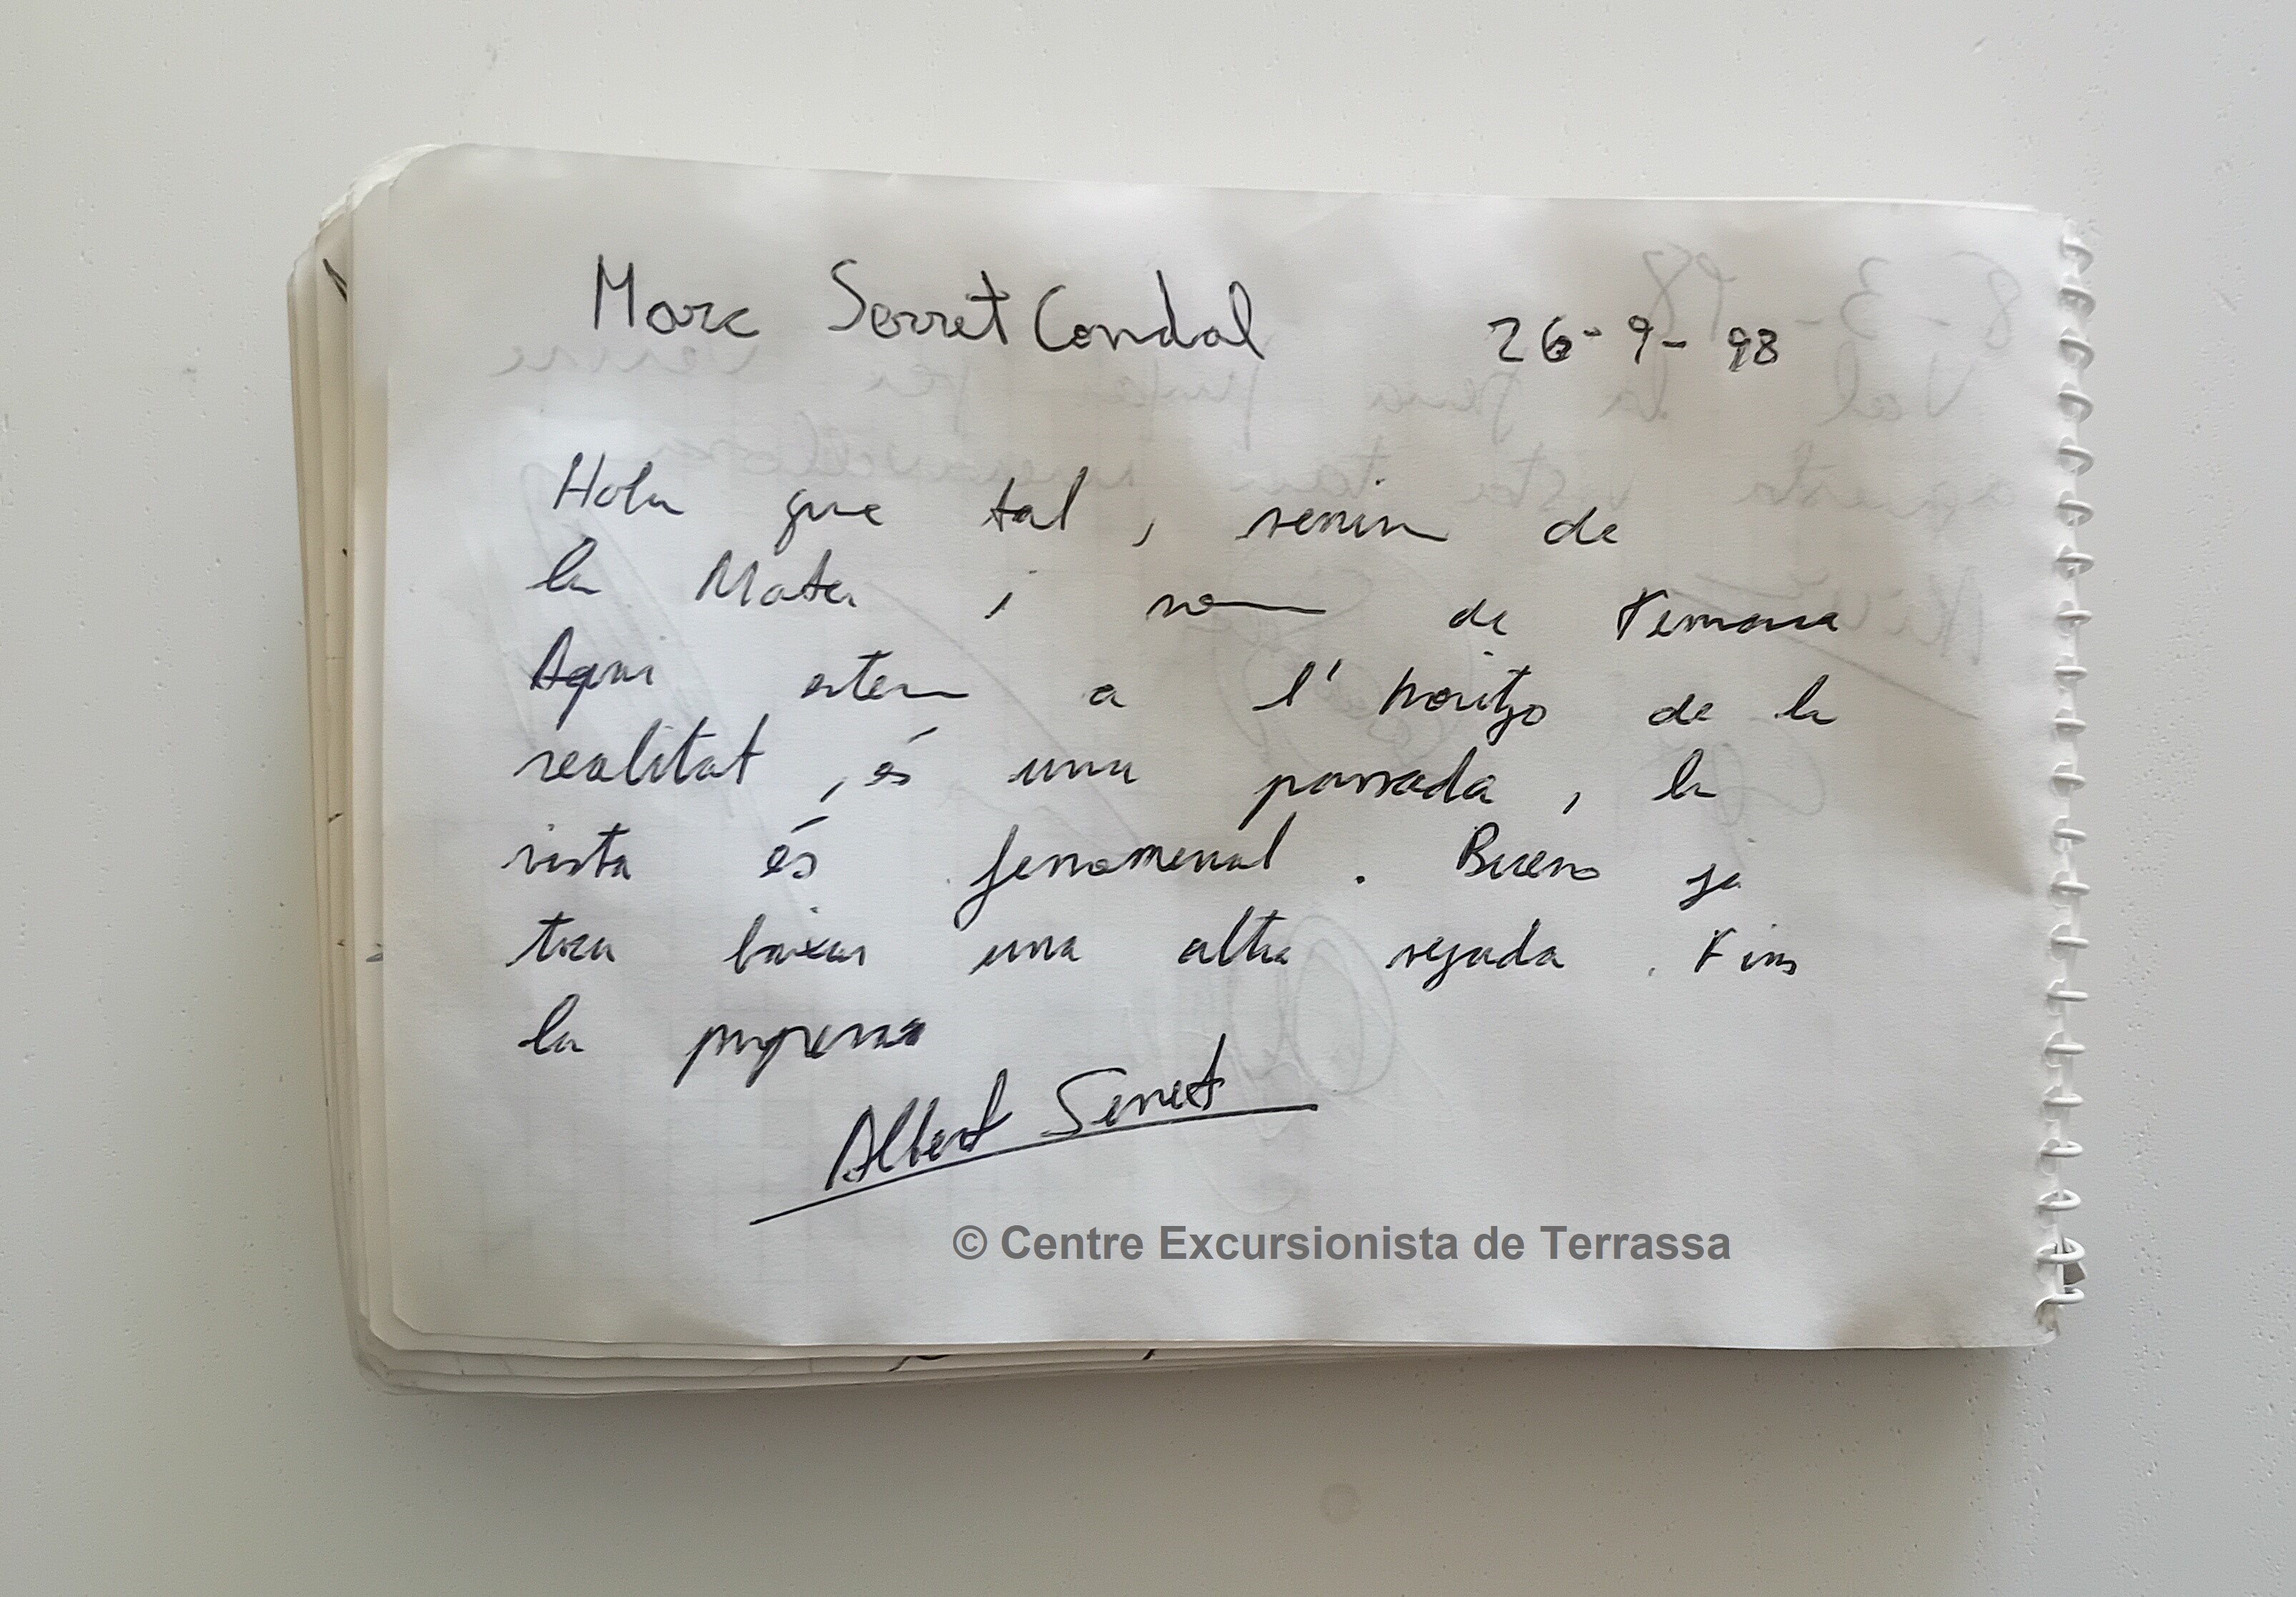 Marc Serret Condal 26-9-98
Hola que tal, venim de
la Mata i som de Terrassa
Aqui estem a l'horitzo de la
realitat, és una passada, la
vista és fenomenal. Bueno ja
toca baixar una altra vegada. Fins
la propera
Albert Serret
© Centre Excursionista de Terrassa